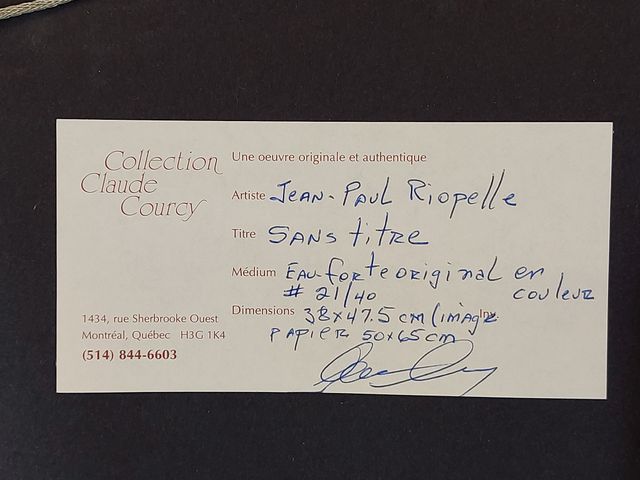 Collection
Claude
Courcy
Une oeuvre originale et authentique
Artiste JEAN-PAUL RiopellE
Titre SANS titRE
Médium EAU-forte original en
# 21/40 couleur
Dimensions 38x47.5 cm/image Inv.
PAPiER 50x65cm
1434, rue Sherbrooke Ouest
Montréal, Québec H3G 1K4
(514) 844-6603